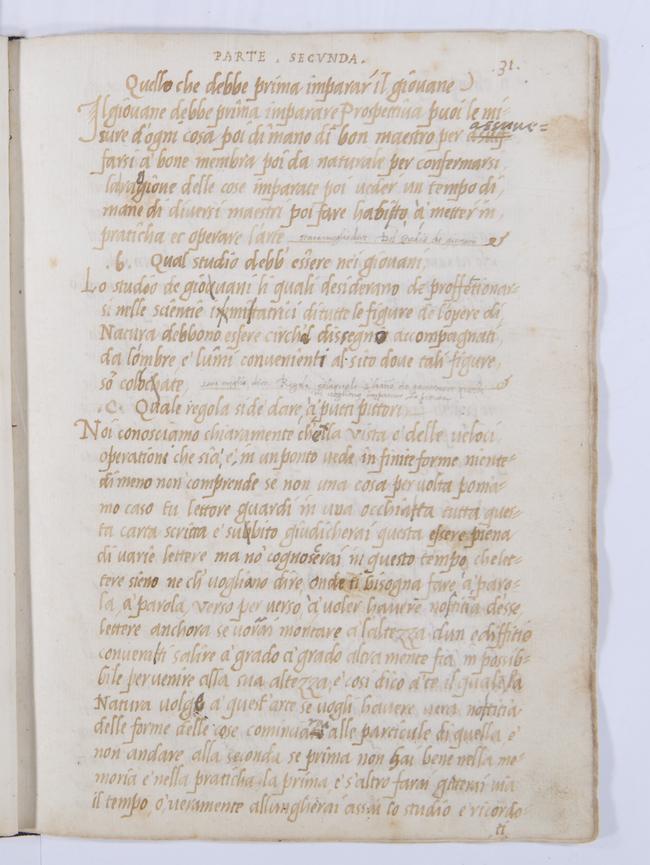 PARTE . SECVNDA.
31.
Quello che debbe prima imparar il giovane
Il giovane debbe prima imparare Prospettiva puoi le mi-
sure d'ogni cosa poi di mano di bon maestro per assuue=
farsi à bone membra poi da naturale per confermarsi
la ragione delle cose imparate poi veder un tempo di
mane di diversi maestri poi fare habito à metter in
praticha et operare l'arte
.b. Qual studio debb' essere nei giovani,
Lo studio de giovani li quali desiderano de proffettionar-
si nelle scientie immitatrici di tutte le figure de l'opere di
Natura debbono essere circh'il dissegno accompagnati
da l'ombre, e lumi convenienti al sito dove tali figure,
sō collochate,
.c. Quale regola si de dare, à putti pittori
Noi conosciamo chiaramente che la vista e' delle veloci
operationi che sia, e, in un ponto vede infinite forme niente-
dimeno non comprende se non una cosa per volta ponia-
mo caso tu lettore guardi in una occhiatta tutta ques-
ta carta scritta e' subbito giudicherai questa essere piena
di varie lettere ma nō cognoscerai in questo tempo, che let-
tere sieno ne ch' vogliano dire, onde ti bisogna fare à paro-
la, à parola, verso per verso, à voler havere nottitia desse
lettere anchora se vorrai montare a l'altezza d'un ediffitio
converrati salire à grado à grado altramente fia, impossib-
bile pervenire alla sua altezza, e' cosi dico a te il quale la
Natura volge a quest'arte se vogli havere vera nottitia
delle forme delle cose comincia alle particule di quella e'
non andare, alla seconda se prima non hai bene nella me-
moria e' nella praticha la prima e' s'altro farai gitterai via
il tempo o' veramente allungherai assai lo studio e' ricordo-
ti